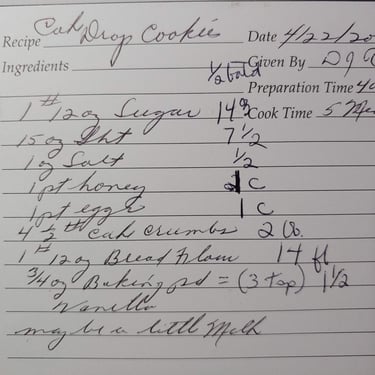 Recipe Cak Drop Cookies Date 4/22/20
Ingredients 1/2 batd Given By D J
Preparation Time 40
1 # 12 oz Sugar 14 oz Cook Time 5 Me
15 oz Sht 7 1/2
1 oz Salt 1/2
1 pt honey 1 C
1 pt eggs 1 C
4 1/2 # Cak Crumbs 2 lb.
1 # 12 oz Bread Flour 14 fl
3/4 oz Baking pd = (3 tsp) 1 1/2
Vanilla
maybe a little Milk